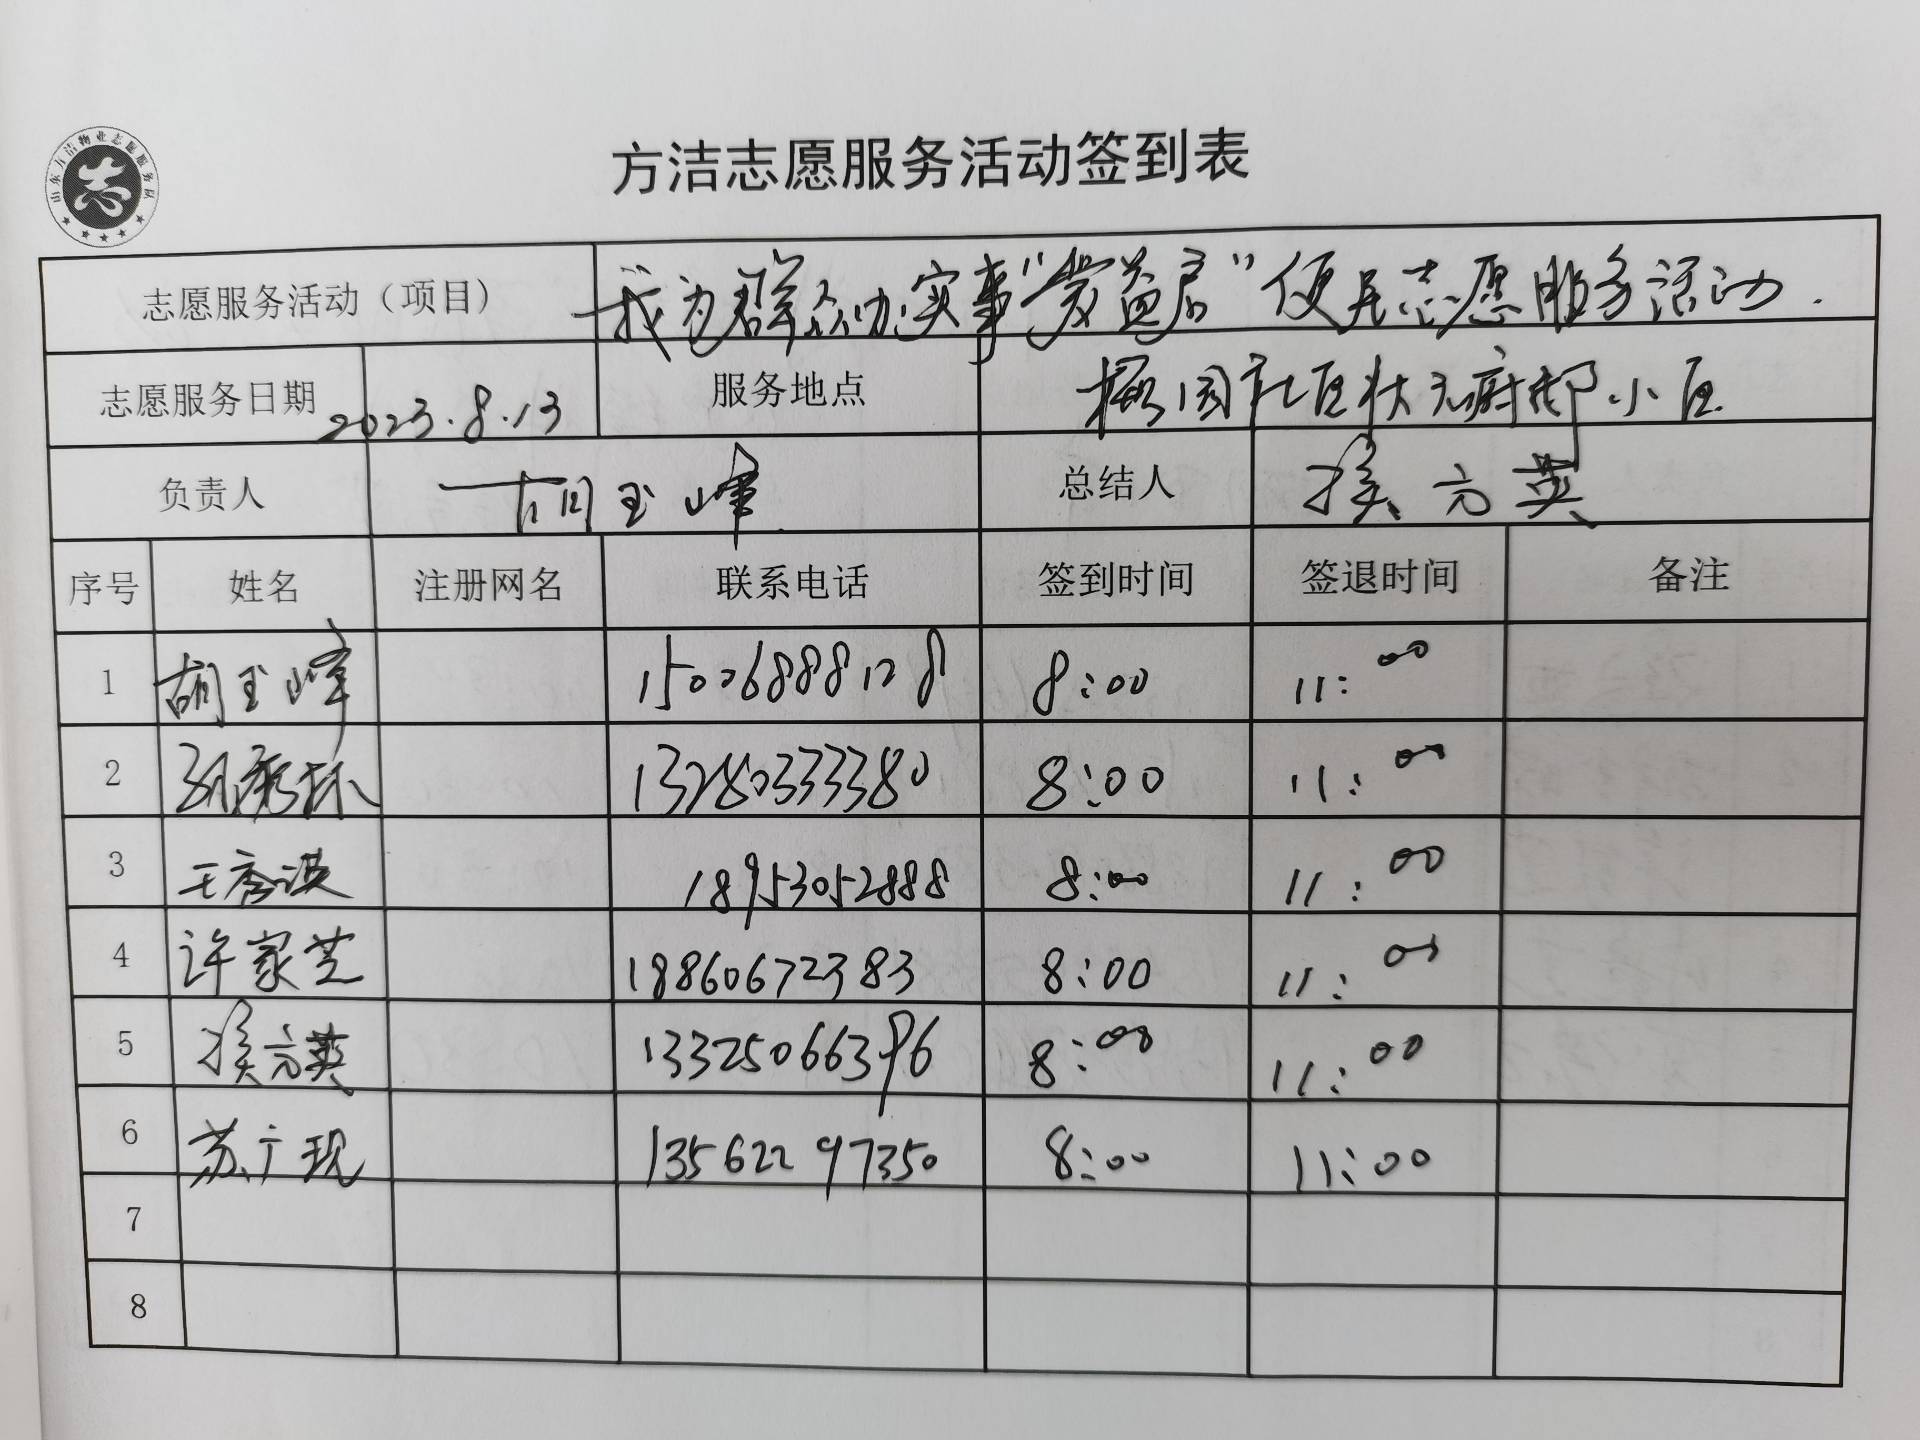 山东方洁物业志愿服务队
方洁志愿服务活动签到表
志愿服务活动（项目） 我为群众办实事“爱益居”便民志愿服务活动.
志愿服务日期 2023.8.13 服务地点 园社区状元府邸小区
负责人 胡玉峰 总结人 侯方英
序号 姓名 注册网名 联系电话 签到时间 签退时间 备注
1 胡玉峰 15006888128 8:00 11:00
2 秀环 13280333380 8:00 11:00
3 王秀洪 18953052888 8:00 11:00
4 许家芝 18860672383 8:00 11:00
5 侯方英 13325066396 8:00 11:00
6 苏广现 13562297350 8:00 11:00
7
8